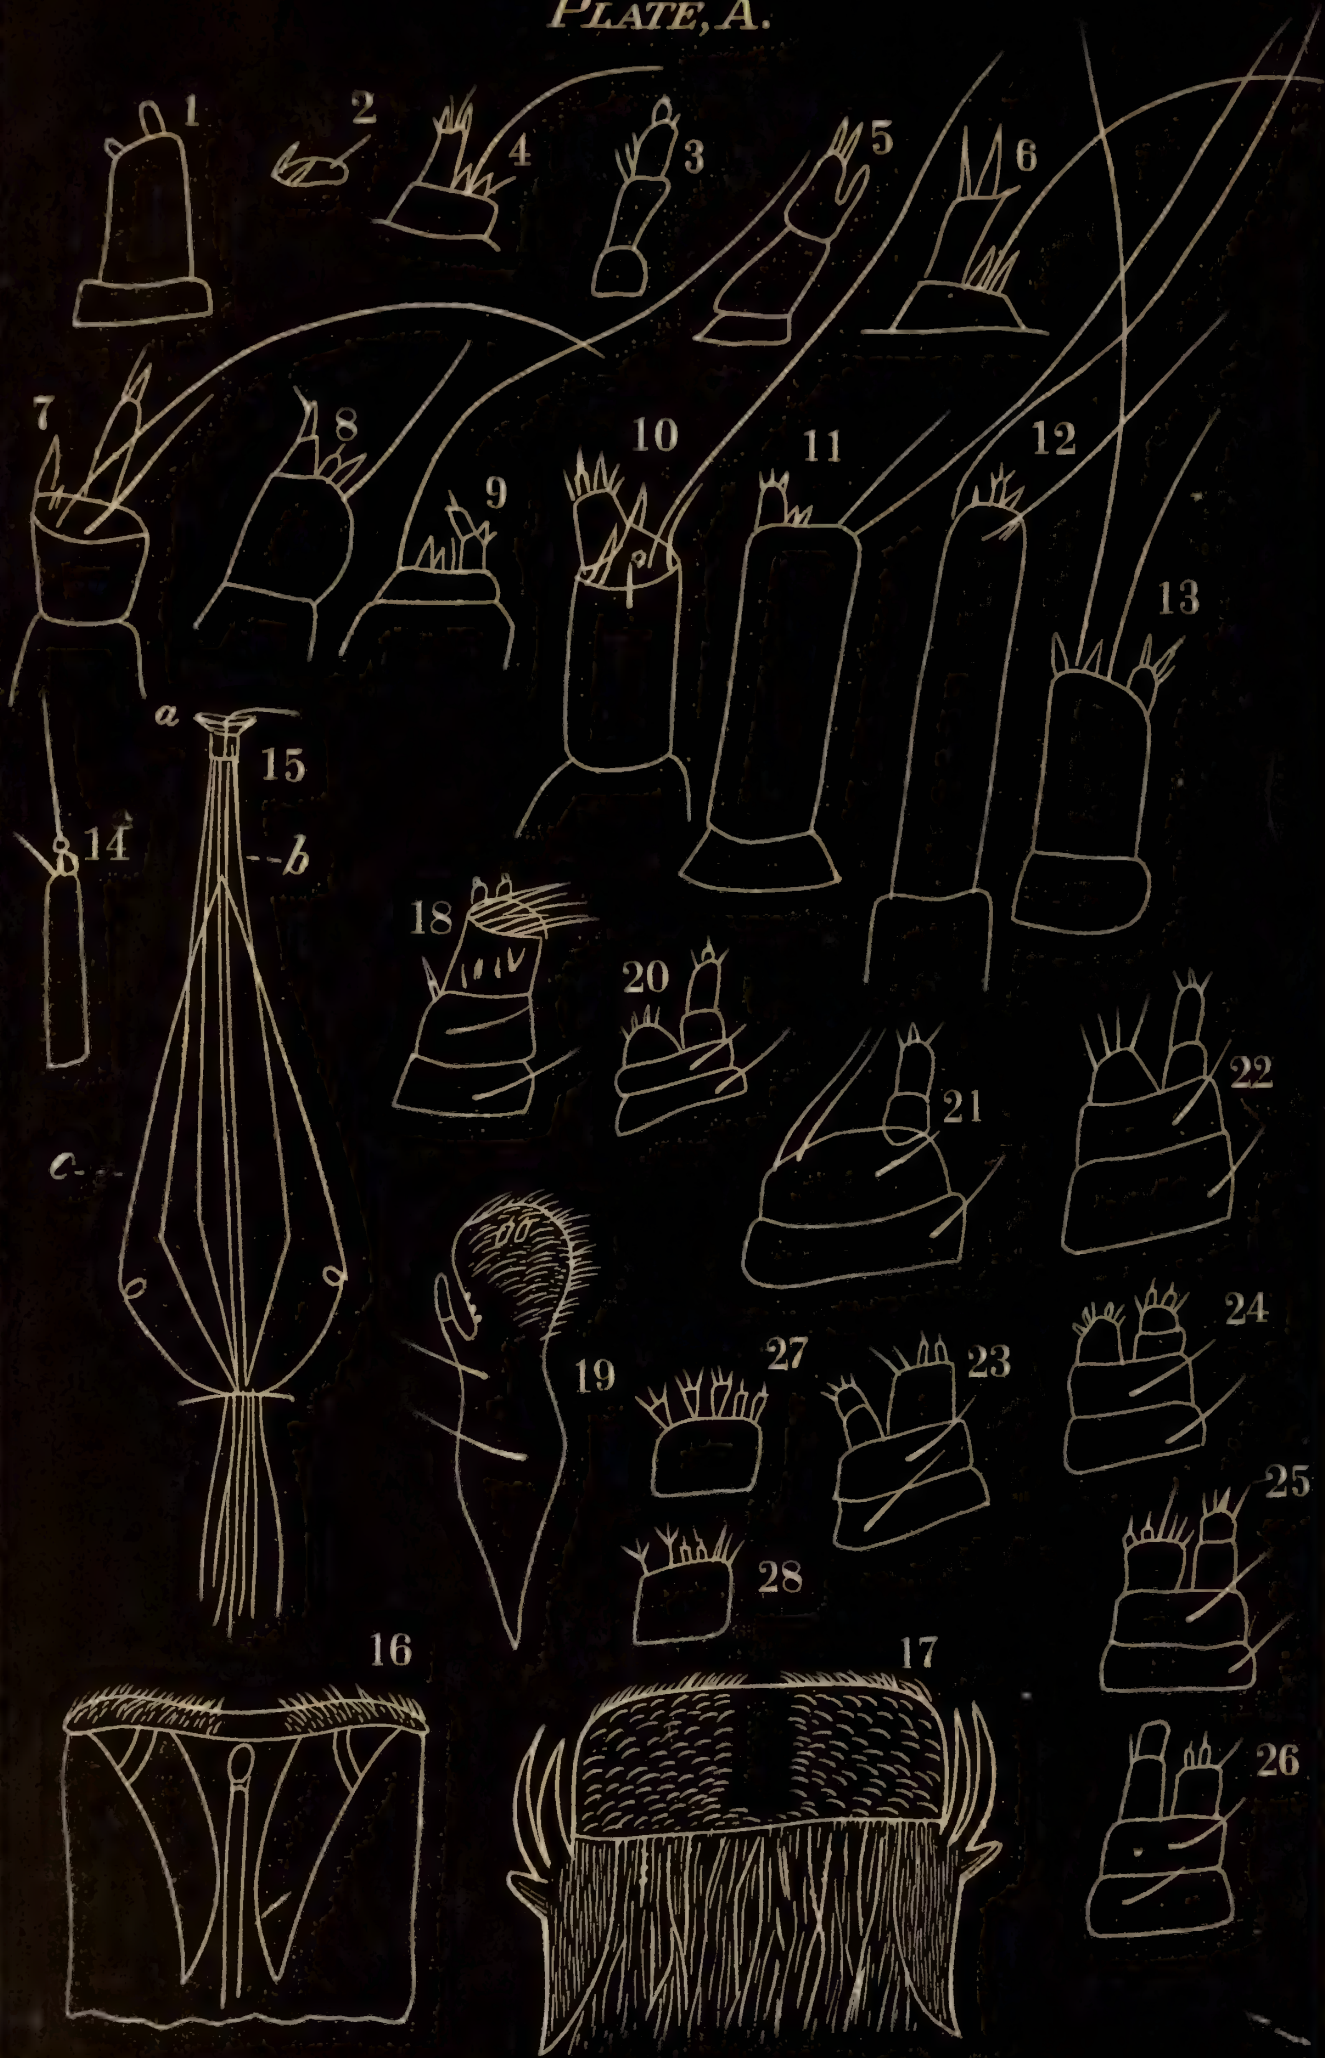 PLATE, A.
1
2
4
3
5
6
7
8
9
10
11
12
13
a
15
14
b
18
20
22
21
c
24
27
23
19
25
28
16
17
26